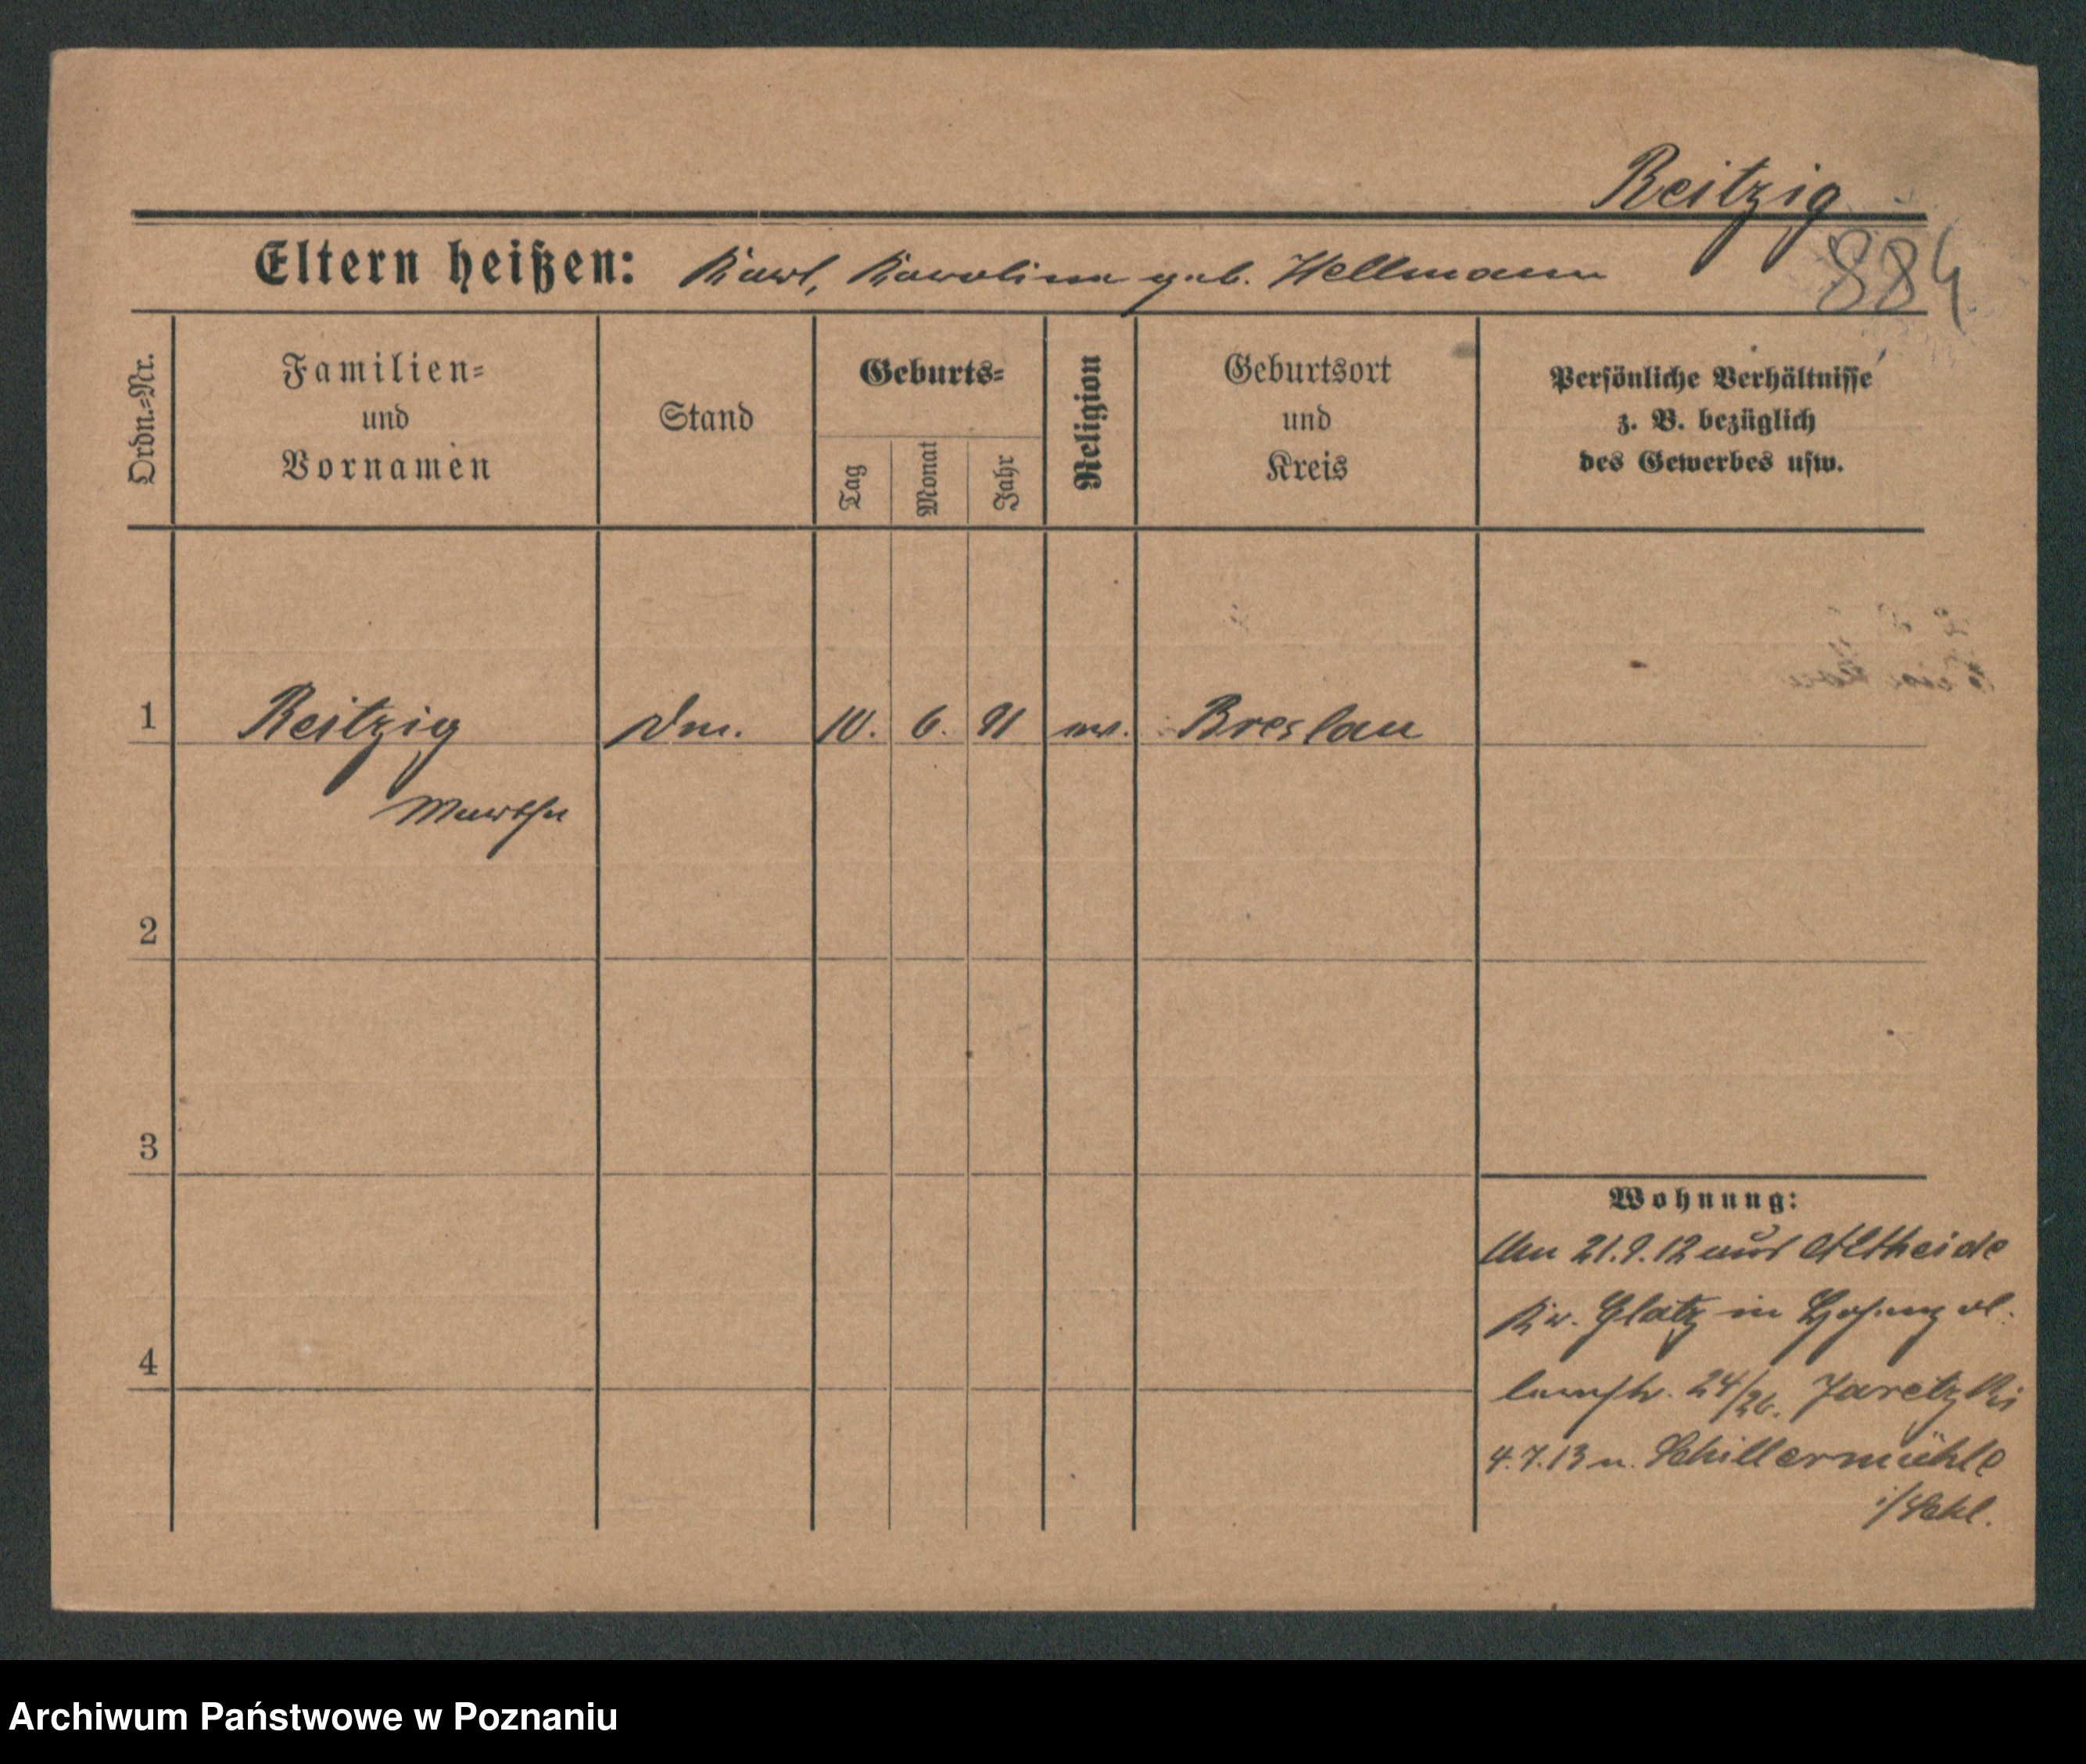 Reitzig
884
Eltern heißen: Karl, Karolina geb. Hellmann
Ordn.=Nr.
Familien=
und
Vornamen
Stand
Geburts=
Tag
Monat
Jahr
Religion
Geburtsort
und
Kreis
Persönliche Verhältnisse
z. B. bezüglich
des Gewerbes usw.
1 Reitzig 10. 6. 91 Breslau
Martha
2
3
4
Wohnung:
Am 21.9.12 aus Altheide
Kr. Glatz in Hohenzol-
lernstr. 24/26. Jaretzki
4.7.13 n. Schillermühle
i/Schl.
Archiwum Państwowe w Poznaniu